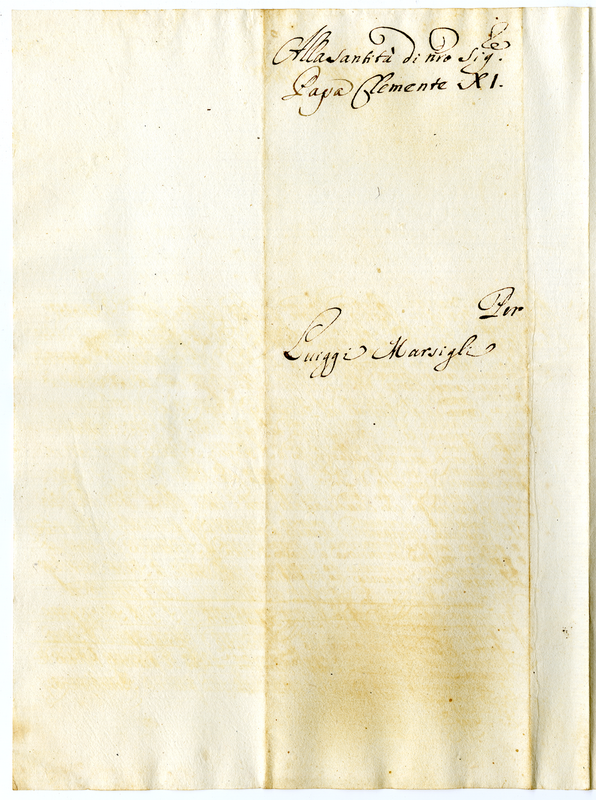 Alla Santità di nro Sig.re
Papa Clemente XI.
Per
Luiggi Marsigli